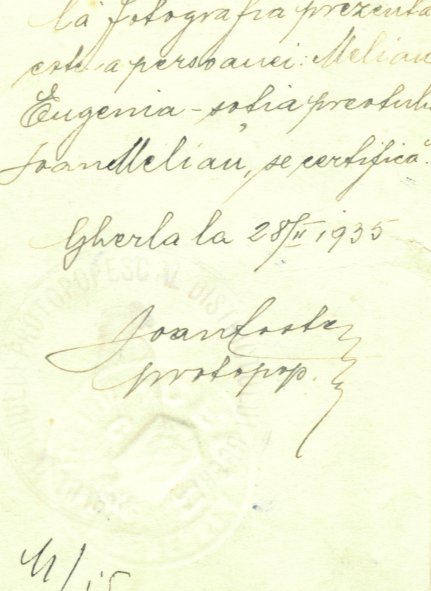 la fotografia prezenta
este a persoanei: Melian
Eugenia - soția preotului
Ioan Melian, se certifică.
Gherla la 28/II 1935
Ioan Coste
protopop.
PROTOPOPESC AL DIST